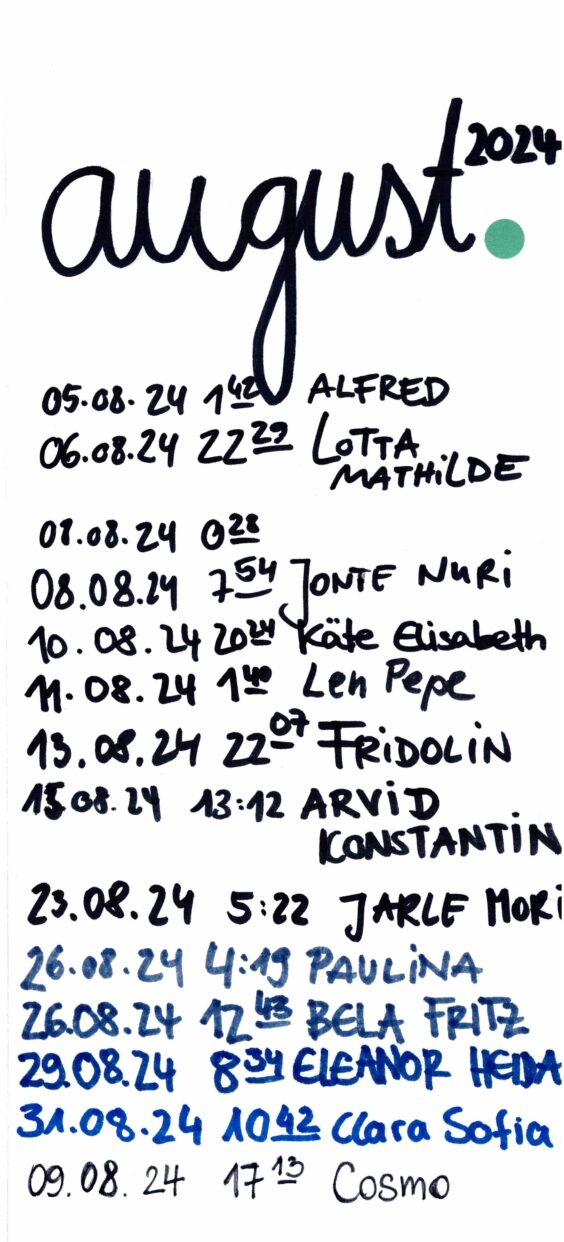 august. 2024
05.08.24 1 42 ALFRED
06.08.24 22 29 LOTTA
MATHILDE
07.08.24 0 28
08.08.24 7 54 JONTE NURI
10.08.24 20 24 Käte Elisabeth
11.08.24 1 40 Len Pepe
13.08.24 22 07 FRIDOLIN
15.08.24 13:12 ARVID
KONSTANTIN
23.08.24 5:22 JARLE MORI
26.08.24 4:19 PAULINA
26.08.24 12 43 BELA FRITZ
29.08.24 8 34 ELEANOR HEIDA
31.08.24 10 42 Clara Sofia
09.08.24 17 13 Cosmo